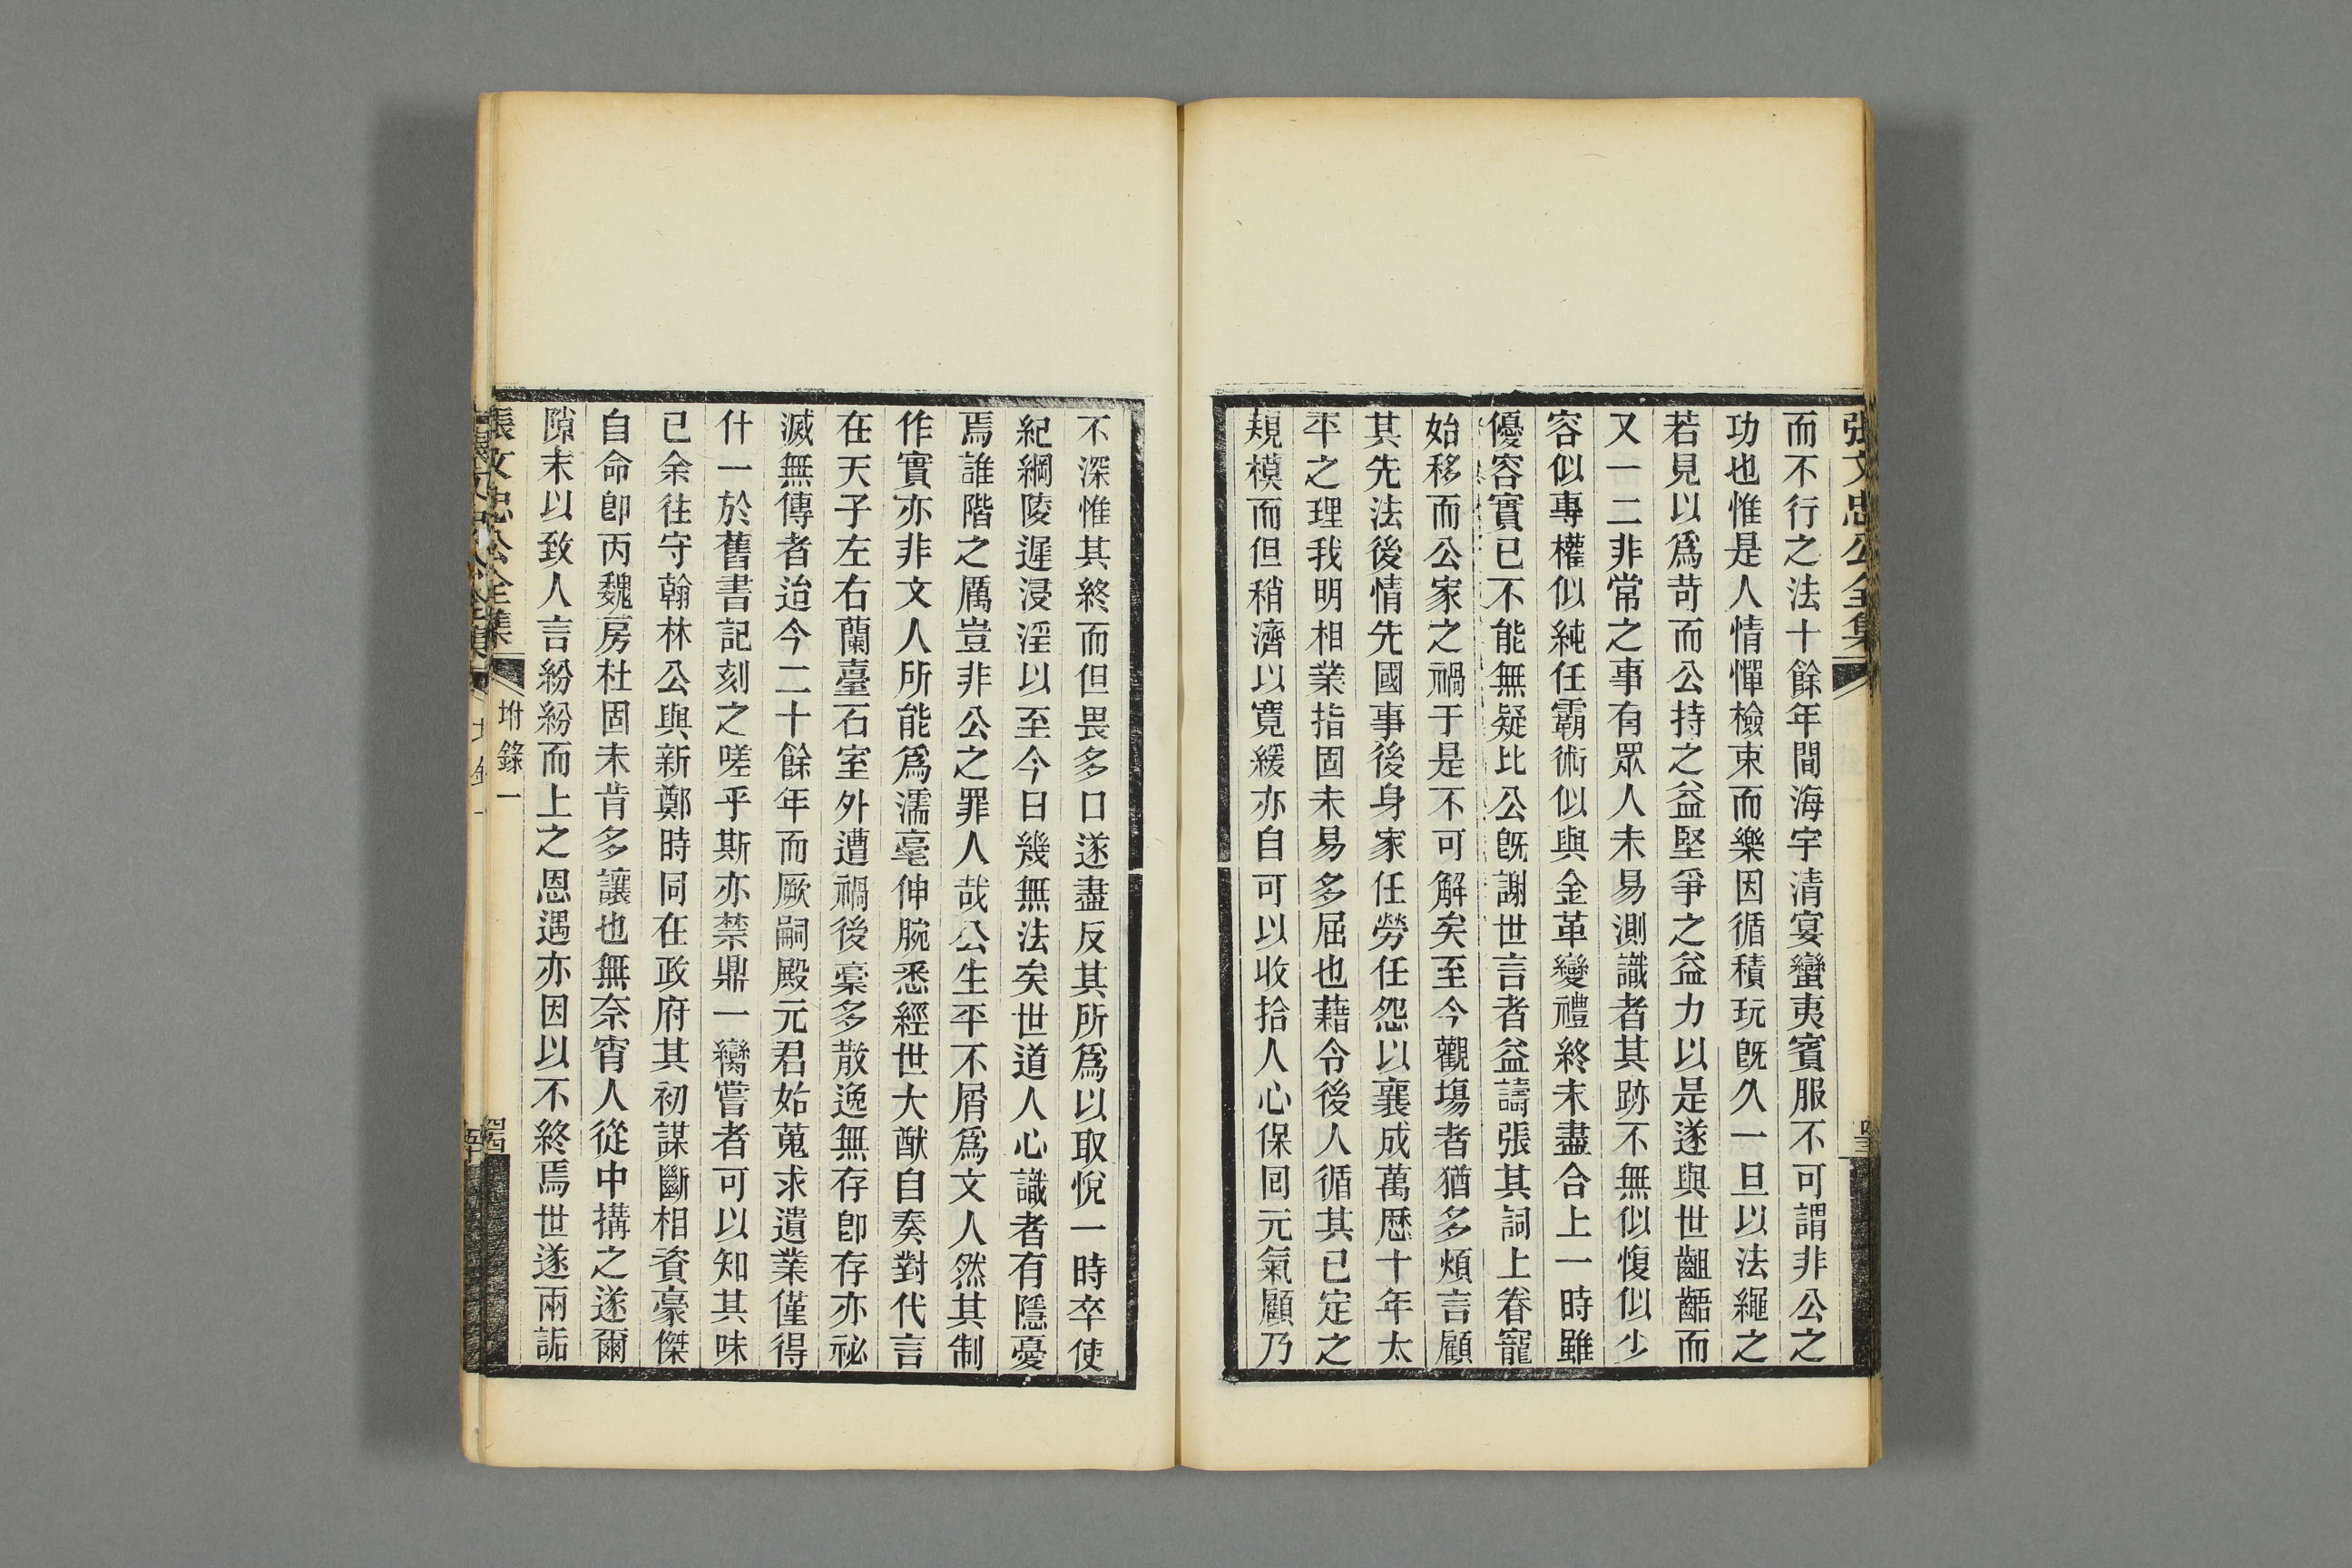 張文忠公全集
而不行之法十餘年間海宇清宴蠻夷賓服不可謂非公之
功也惟是人情憚檢束而樂因循積玩既久一旦以法繩之
若見以爲苛而公持之益堅爭之益力以是遂與世齟齬而
又一二非常之事有眾人未易測識者其跡不無似愎似少
容似專權似純任霸術似與金革變禮終未盡合上一時雖
優容實已不能無疑比公既謝世言者益譸張其詞上眷寵
始移而公家之禍于是不可解矣至今觀塲者猶多煩言顧
其先法後情先國事後身家任勞任怨以襄成萬曆十年太
平之理我明相業指固未易多屈也藉令後人循其已定之
規模而但稍濟以寬緩亦自可以收拾人心保囘元氣顧乃
不深惟其終而但畏多口遂盡反其所爲以取悅一時卒使
紀綱陵遲浸淫以至今日幾無法矣世道人心識者有隱憂
焉誰階之厲豈非公之罪人哉公生平不屑爲文人然其制
作實亦非文人所能爲濡毫伸腕悉經世大猷自奏對代言
在天子左右蘭臺石室外遭禍後稾多散逸無存卽存亦祕
滅無傳者迨今二十餘年而厥嗣殿元君始蒐求遺業僅得
什一於舊書記刻之嗟乎斯亦禁鼎一臠嘗者可以知其味
已余往守翰林公與新鄭時同在政府其初謀斷相資豪傑
自命卽丙魏房杜固未肯多讓也無奈宵人從中搆之遂爾
隙末以致人言紛紛而上之恩遇亦因以不終焉世遂兩詬
張文忠公全集
坿錄一